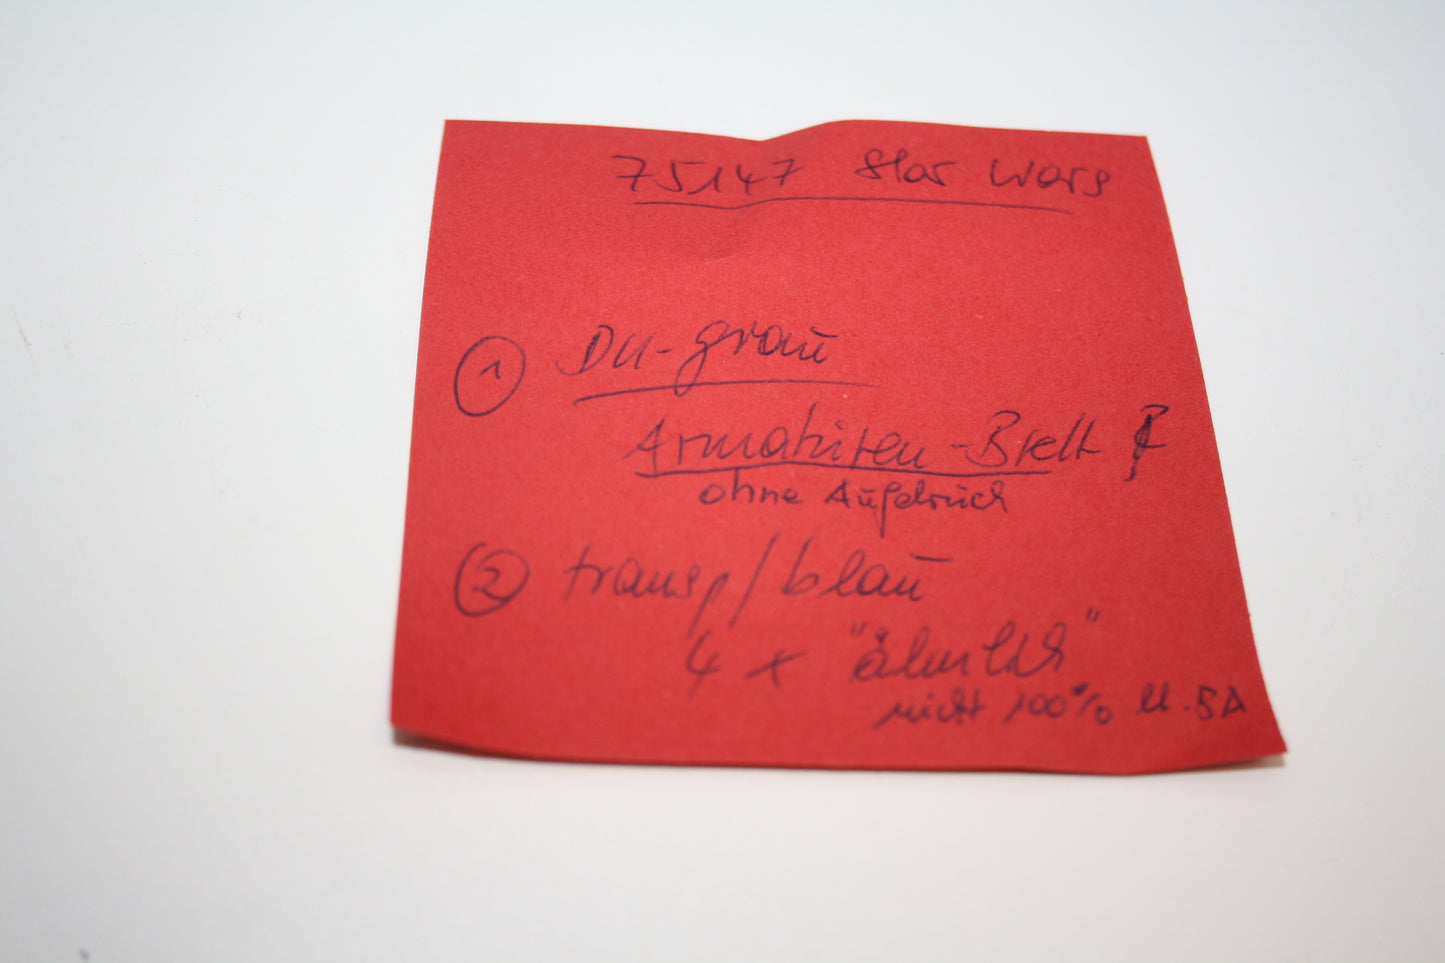 75147 Star Wars
① DU-grau
Armaturen-Brett
ohne Aufdruck
② transp/blau
4 x "ähnlich"
nicht 100% U.BA